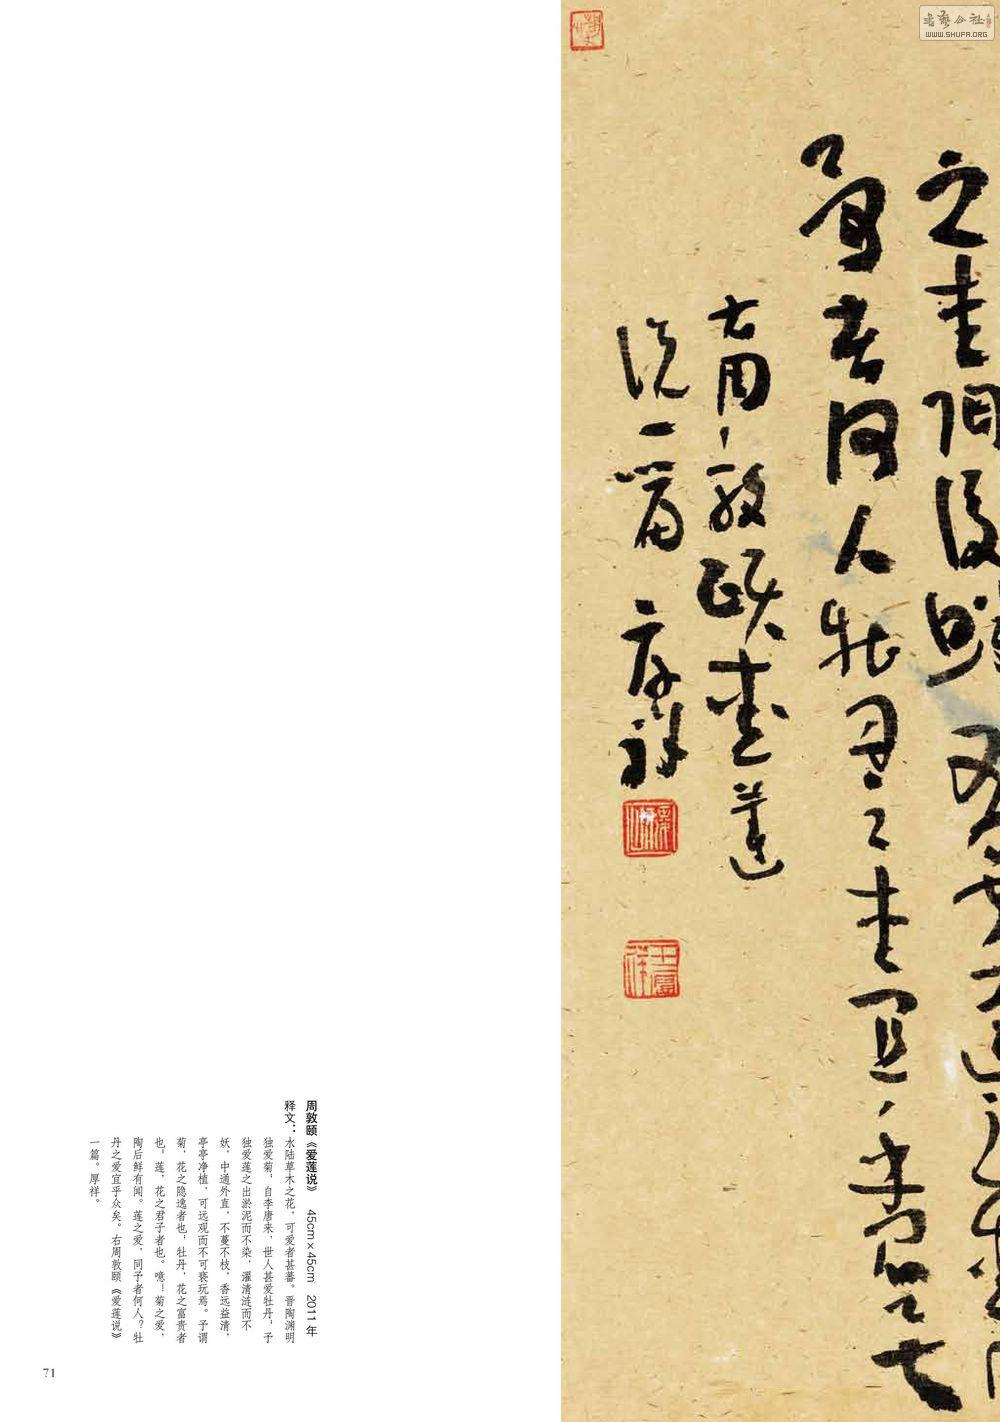 书艺公社
WWW.SHUFA.ORG
之愛陶後鮮有聞蓮之愛同
予者何人牡丹之愛宜乎衆矣
右周敦頤愛蓮
説一篇 厚祥
周敦颐《爱莲说》 45cm×45cm 2011年
释文：水陆草木之花，可爱者甚蕃。晋陶渊明
独爱菊，自李唐来，世人甚爱牡丹；予
独爱莲之出淤泥而不染，濯清涟而不
妖，中通外直，不蔓不枝，香远益清，
亭亭净植，可远观而不可亵玩焉。予谓
菊，花之隐逸者也，牡丹，花之富贵者
也，莲，花之君子者也。噫！菊之爱，
陶后鲜有闻。莲之爱，同予者何人？牡
丹之爱宜乎众矣。右周敦颐《爱莲说》
一篇。厚祥。
71